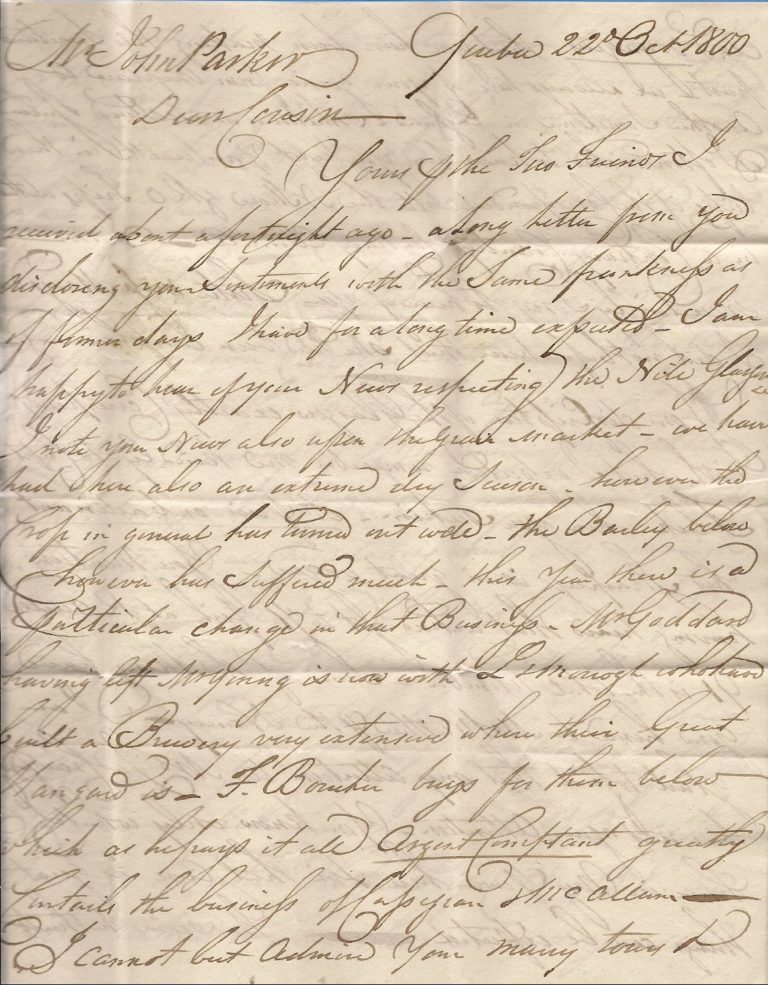 Mr John Parker Quebec 22d Oct 1800
Dear Cousin
Yours of the Two Friends I
received about a fortnight ago - a Long letter from you
disclosing your Sentiments with the Same frankness as
of former days I have for a long time expected - I am
happy to hear of your News respecting the Note Glasgow
I note your News also upon the Grain market - we have
had here also an extreme dry Season - however the
Crop in general has turned out well - the Barley below
however has suffered much - this Year there is a
Particular change in that Business - Mr Goddard
having left Mr Young is now with & who have
built a Brewery very extensive where their Great
Hangard is - F. Boucher buys for them below
which as he pays it all Argent Comptant greatly
Curtails the business of & McCallum
I cannot but Admire Your many tours &